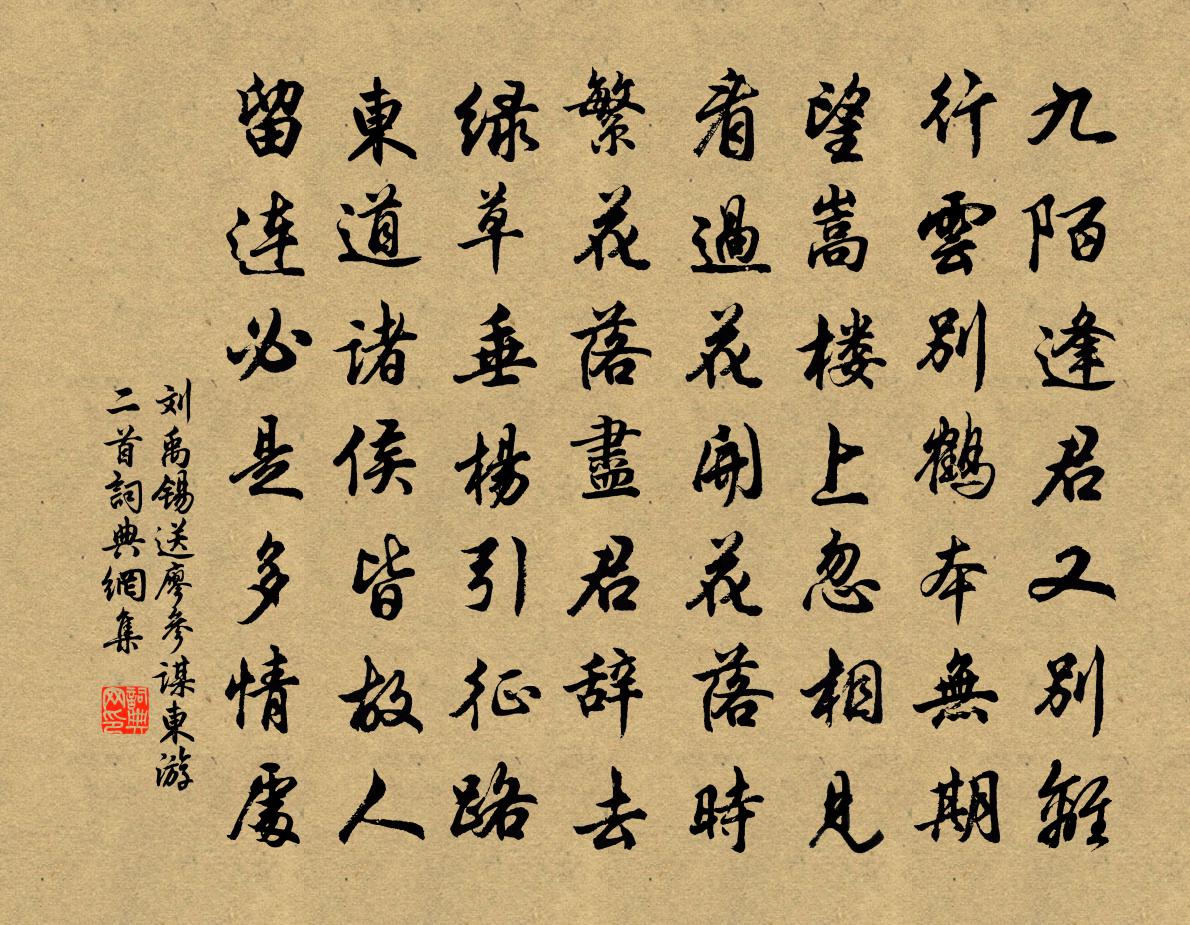 九陌逢君又别離
行雲别鹤本無期
望嵩楼上忽相見
看過花開花落時
繁花落盡君辞去
绿草垂楊引征路
東道諸侯皆故人
留连必是多情處
刘禹锡送廖參謀東游
二首詞典網集
詞典网印